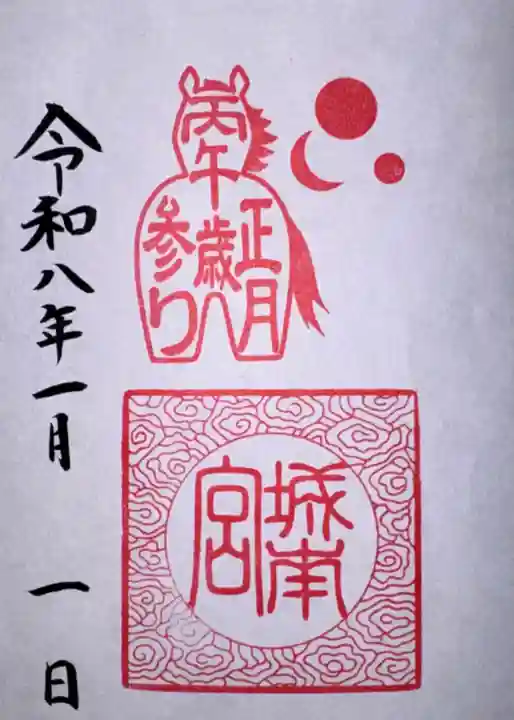 丙午歳
正月
参り
城南宮
令和八年一月一日